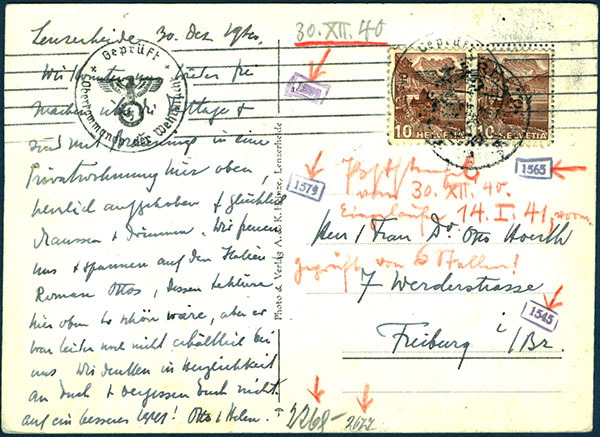 Lenzerheide 30. Dez 1940.
Wir konnten uns leider frei
machen über die Festtage &
sind mit in eine
Privatwohnung hier oben,
herrlich aufgehoben & glücklich
draussen & drinnen. Wir freuen
uns & spannen auf den
Roman Ottos, dessen Lektüre
hier oben so schön wäre, aber er
war leider noch nicht erhältlich bei
uns. Wir denken in Herzlichkeit
an Euch & vergessen Euch nicht.
auf ein besseres 1941! Otto & Helen.
Geprüft
Oberkommando der Wehrmacht
Photo & Verlag A. & K. Lenzerheide
30. XII. 40
Geprüft
10 HELVETIA
10 HELVETIA
1579
1565
vom 30. XII. 40.
14. I. 41, vorm.
Herr & Frau Dr. Otto Hoerth
geprüft von 6 Stellen!
7 Werderstrasse
1545
Freiburg i/Br.
2268-
2677